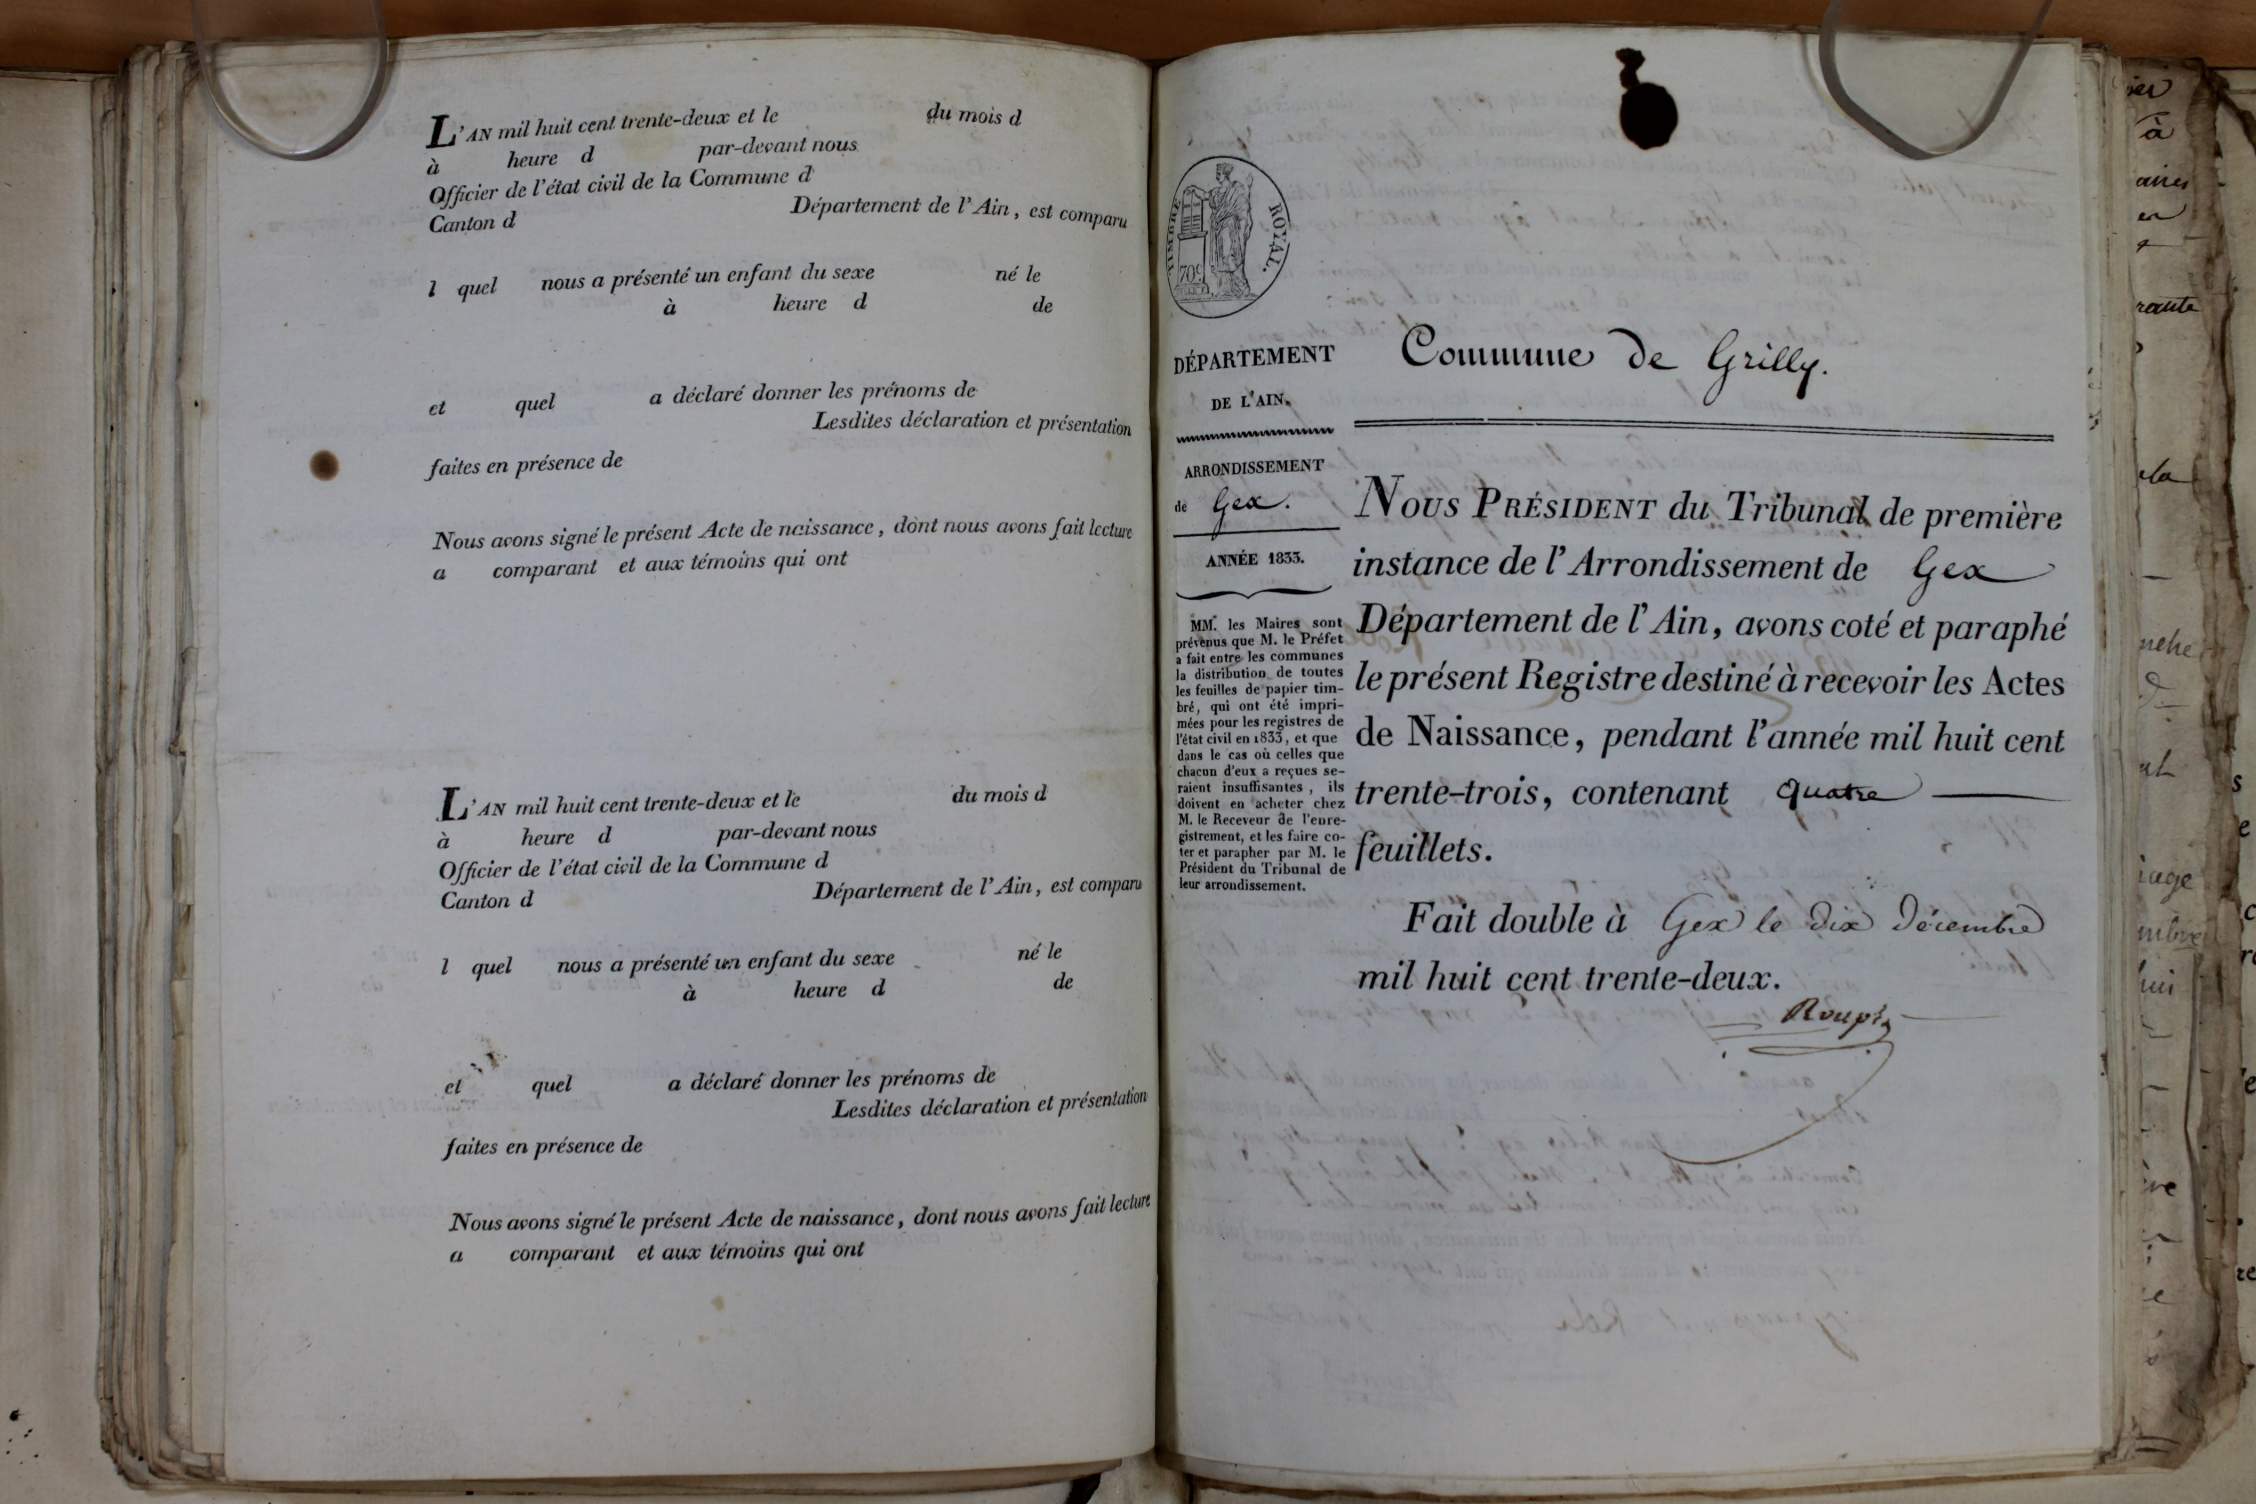 L'AN mil huit cent trente-deux et le du mois d
à heure d par-devant nous
Officier de l'état civil de la Commune d
Canton d Département de l'Ain, est comparu
l quel nous a présenté un enfant du sexe né le
à heure d de
et quel a déclaré donner les prénoms de
Lesdites déclaration et présentation
faites en présence de
Nous avons signé le présent Acte de naissance, dont nous avons fait lecture
a comparant et aux témoins qui ont
L'AN mil huit cent trente-deux et le du mois d
à heure d par-devant nous
Officier de l'état civil de la Commune d
Canton d Département de l'Ain, est comparu
l quel nous a présenté un enfant du sexe né le
à heure d de
et quel a déclaré donner les prénoms de
Lesdites déclaration et présentation
faites en présence de
Nous avons signé le présent Acte de naissance, dont nous avons fait lecture
a comparant et aux témoins qui ont
TIMBRE ROYAL.
70c
DÉPARTEMENT
DE L'AIN.
ARRONDISSEMENT
de Gex.
ANNÉE 1833.
MM. les Maires sont
prévenus que M. le Préfet
a fait entre les communes
la distribution de toutes
les feuilles de papier tim-
bré, qui ont été impri-
mées pour les registres de
l'état civil en 1833, et que
dans le cas où celles que
chacun d'eux a reçues se-
raient insuffisantes, ils
doivent en acheter chez
M. le Receveur de l'enre-
gistrement, et les faire co-
ter et parapher par M. le
Président du Tribunal de
leur arrondissement.
Commune de Grilly.
NOUS PRÉSIDENT du Tribunal de première
instance de l'Arrondissement de Gex
Département de l'Ain, avons coté et paraphé
le présent Registre destiné à recevoir les Actes
de Naissance, pendant l'année mil huit cent
trente-trois, contenant quatre
feuillets.
Fait double à Gex le dix Décembre
mil huit cent trente-deux.